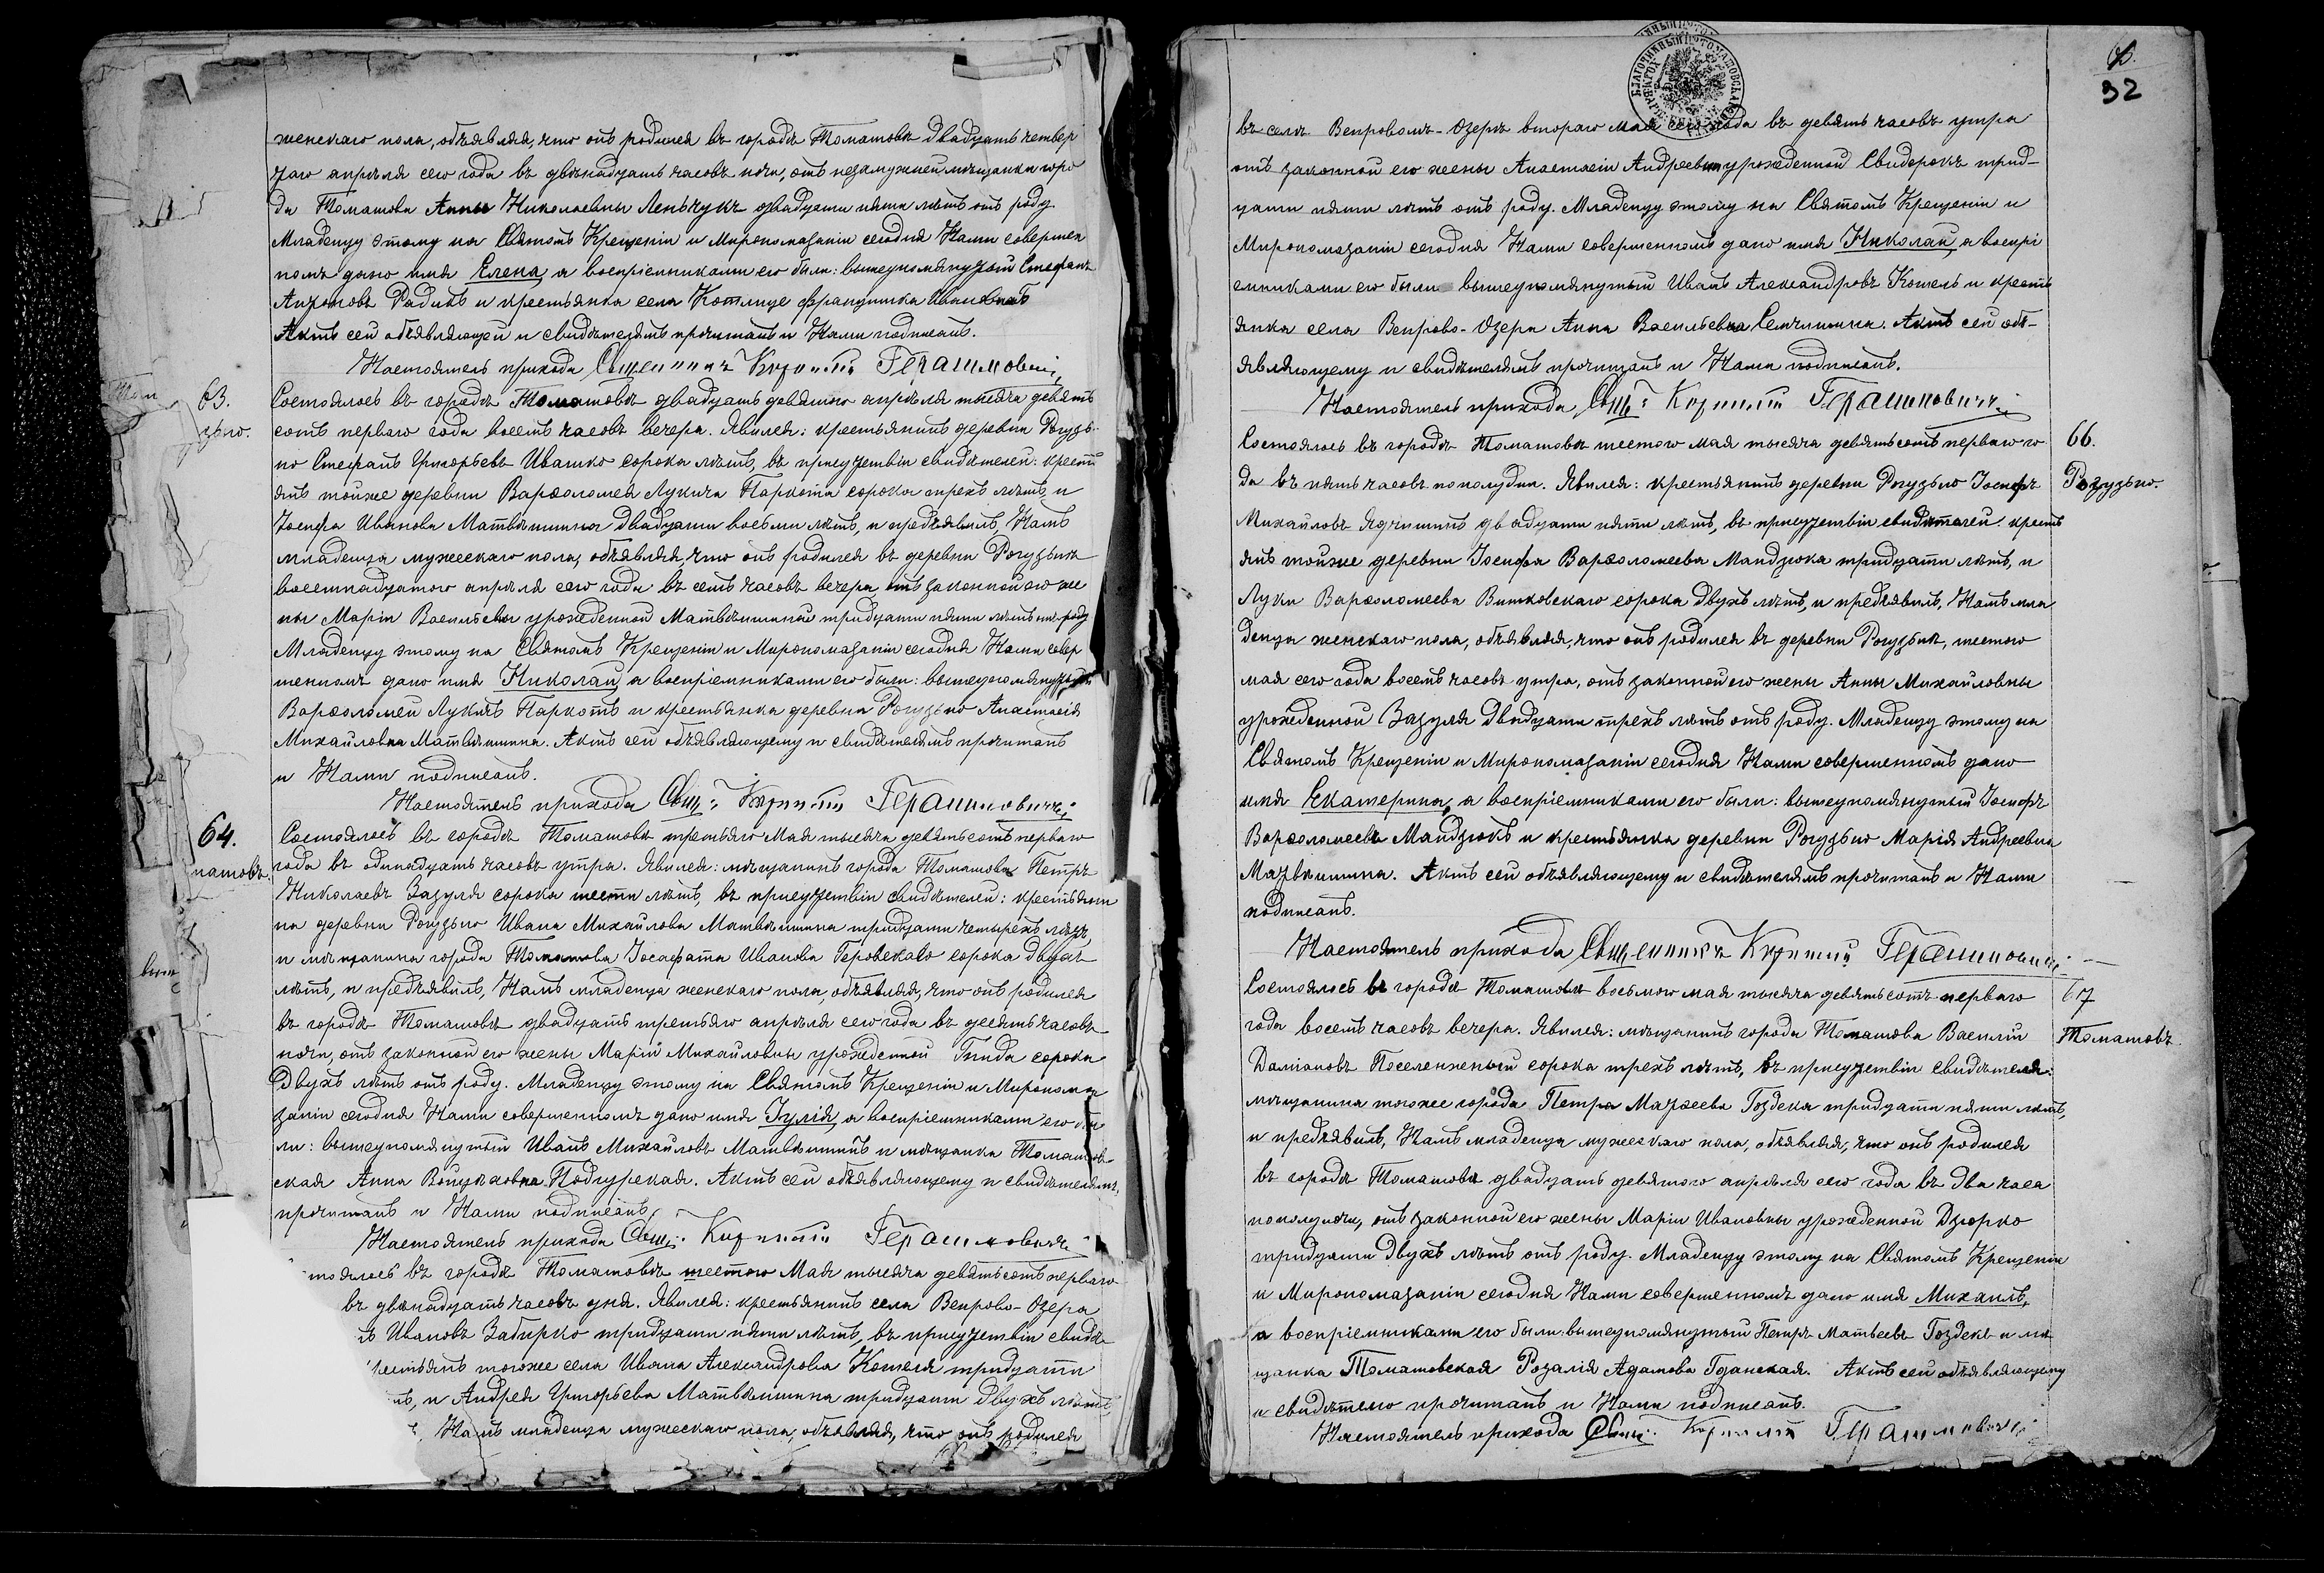 женскаго пола, объявляя, что онъ родился въ городѣ Томашовѣ двадцать четвер
таго апрѣля сего года въ двѣнадцать часовъ ночи, отъ незамужней мѣщанки горо
да Томашова Анны Николаевны Леньчукъ двадцати пяти лѣтъ отъ роду.
Младенцу этому на Святомъ Крещеніи и Мѵропомазаніи сегодня Нами совершен
номъ дано имя Елена, а воспріемниками его были: вышеупомянутый Стефанъ
Антоновъ Радикъ и крестьянка села Котлице Францишка
Актъ сей объявляющей и свидѣтелямъ прочитанъ и Нами подписанъ.
Настоятель прихода Священникъ Герасимовичъ
63.
Состоялось въ городѣ Томашовѣ двадцать девятого апрѣля тысяча девять
сотъ перваго года восемь часовъ вечера. Явился: крестьянинъ деревни Рогузь
но Стефанъ Григорьевъ Ивашко сорока лѣтъ, въ присутствіи свидѣтелей: крестъ
янъ тойже деревни Варѳоломея Лукича Паркота сорока трехъ лѣтъ, и
Іосифа Иванова Матвѣишина двадцати восьми лѣтъ, и предъявилъ, Намъ
младенца мужескаго пола, объявляя, что онъ родился въ деревни Рогузьнѣ
восемнадцатого апрѣля сего года въ семь часовъ вечера, отъ законной его же
ны Маріи Васильевны урожденной Матвѣишиной тридцати пяти лѣтъ отъ роду
Младенцу этому на Святомъ Крещеніи и Мѵропомазаніи сегодня Нами совер
шенномъ дано имя Николай, а воспріемниками его были: вышеупомянутый
Варѳоломей Лукичъ Паркотъ и крестьянка деревни Рогузьно Анастасія
Михайловна Матвѣишина. Актъ сей объявляющему и свидѣтелямъ прочитанъ
и Нами подписанъ.
Настоятель прихода Свящ: Герасимовичъ
64.
Состоялось въ городѣ Томашовѣ третьяго Мая тысяча девятьсотъ перваго
года въ одинадцать часовъ утра. Явился: мѣщанинъ города Томашова Петръ
Николаевъ Зазуля сорока шести лѣтъ, въ присутствіи свидѣтелей: крестьяни
на деревни Рогузьно Ивана Михайлова Матвѣишина тридцати четырехъ лѣтъ,
и мѣщанина города Томашова Іосафата Иванова Геровскаго сорока двухъ
лѣтъ, и предъявилъ, Намъ младенца женскаго пола, объявляя, что онъ родился
въ городѣ Томашовѣ двадцать третьяго апрѣля сего года въ десять часовъ
ночи, отъ законной его жены Маріи Михайловны урожденной Гнида сорока
двухъ лѣтъ отъ роду. Младенцу этому на Святомъ Крещеніи и Мѵропома
заніи сегодня Нами совершенномъ дано имя Іулія, а воспріемниками его бы
ли: вышеупомянутый Иванъ Михайловъ Матвѣишинъ и мѣщанка Томашов-
ская Анна Подгурская. Актъ сей объявляющему и свидѣтелямъ,
прочитанъ и Нами подписанъ.
Настоятель прихода Свящ: Герасимовичъ
тоялось въ городѣ Томашовѣ шестого Мая тысяча девятьсотъ перваго
въ двѣнадцать часовъ дня. Явился: крестьянинъ села Вепрово-Озера
Ивановъ Забирко тридцати пяти лѣтъ, въ присутствіи свидѣ
рестьянъ тогоже села Ивана Александрова Кошеля тридцати
и Андрея Григорьева Матвѣишина тридцати двухъ лѣтъ,
Намъ младенца мужескаго пола, объявляя, что онъ родился
32
въ селѣ Вепровомъ-Озерѣ второго мая сего года въ девять часовъ утра
отъ законной его жены Анастасіи Андреевны урожденной Свидерокъ трид-
цати пяти лѣтъ отъ роду. Младенцу этому на Святомъ Крещеніи и
Мѵропомазаніи сегодня Нами совершенномъ дано имя Николай, а воспрі
емниками его были вышеупомянутый Иванъ Александровъ Кошель и кресть
янка села Вепрово-Озера Анна Васильевна Семчишина. Актъ сей объ-
являющему и свидѣтелямъ прочитанъ и Нами подписанъ.
Настоятель прихода, Свящ: Герасимовичъ
66.
Рогузьно.
Состоялось въ городѣ Томашовѣ шестого мая тысяча девятьсотъ перваго го
да въ пять часовъ пополудни. Явился: крестьянинъ деревни Рогузьно Іосифъ
Михайловъ Ядчишинъ двадцати пяти лѣтъ, въ присутствіи свидѣтелей: кресть
янъ тойже деревни Іосифа Варѳоломеева Мандзюка тридцати лѣтъ, и
Луки Варѳоломеева Витковскаго сорока двухъ лѣтъ, и предъявилъ, Намъ мла
денца женскаго пола, объявляя, что онъ родился въ деревни Рогузьнѣ, шестого
мая сего года восемь часовъ утра, отъ законной его жены Анны Михайловны
урожденной Зазуля двадцати трехъ лѣтъ отъ роду. Младенцу этому на
Святомъ Крещеніи и Мѵропомазаніи сегодня Нами совершенномъ дано
имя Екатерина, а воспріемниками его были: вышеупомянутый Іосифъ
Варѳоломеевъ Мандзюкъ и крестьянка деревни Рогузьно Марія Андреевна
Матвѣишина. Актъ сей объявляющему и свидѣтелямъ прочитанъ и Нами
подписанъ.
Настоятель прихода, Священникъ Герасимовичъ
67
Томашовъ.
Состоялось въ городѣ Томашовѣ восьмого мая тысяча девятьсотъ перваго
года восемь часовъ вечера. Явился: мѣщанинъ города Томашова Василій
Даміановъ Поселенжный сорока трехъ лѣтъ, въ присутствіи свидѣтеля:
мѣщанина тогоже города Петра Матѳеева Гоздека тридцати пяти лѣтъ,
и предъявилъ, Намъ младенца мужескаго пола, объявляя, что онъ родился
въ городѣ Томашовѣ двадцать девятого апрѣля сего года въ два часа
пополуночи, отъ законной его жены Маріи Ивановны урожденной Дзюрко
тридцати двухъ лѣтъ отъ роду. Младенцу этому на Святомъ Крещеніи
и Мѵропомазаніи сегодня Нами совершенномъ дано имя Михаилъ,
а воспріемниками его были: вышеупомянутый Петръ Матвеевъ Гоздекъ и мѣ
щанка Томашовская Розалія Адамова Гданская. Актъ сей объявляющему
и свидѣтелю прочитанъ и Нами подписанъ.
Настоятель прихода Свящ: Герасимовичъ